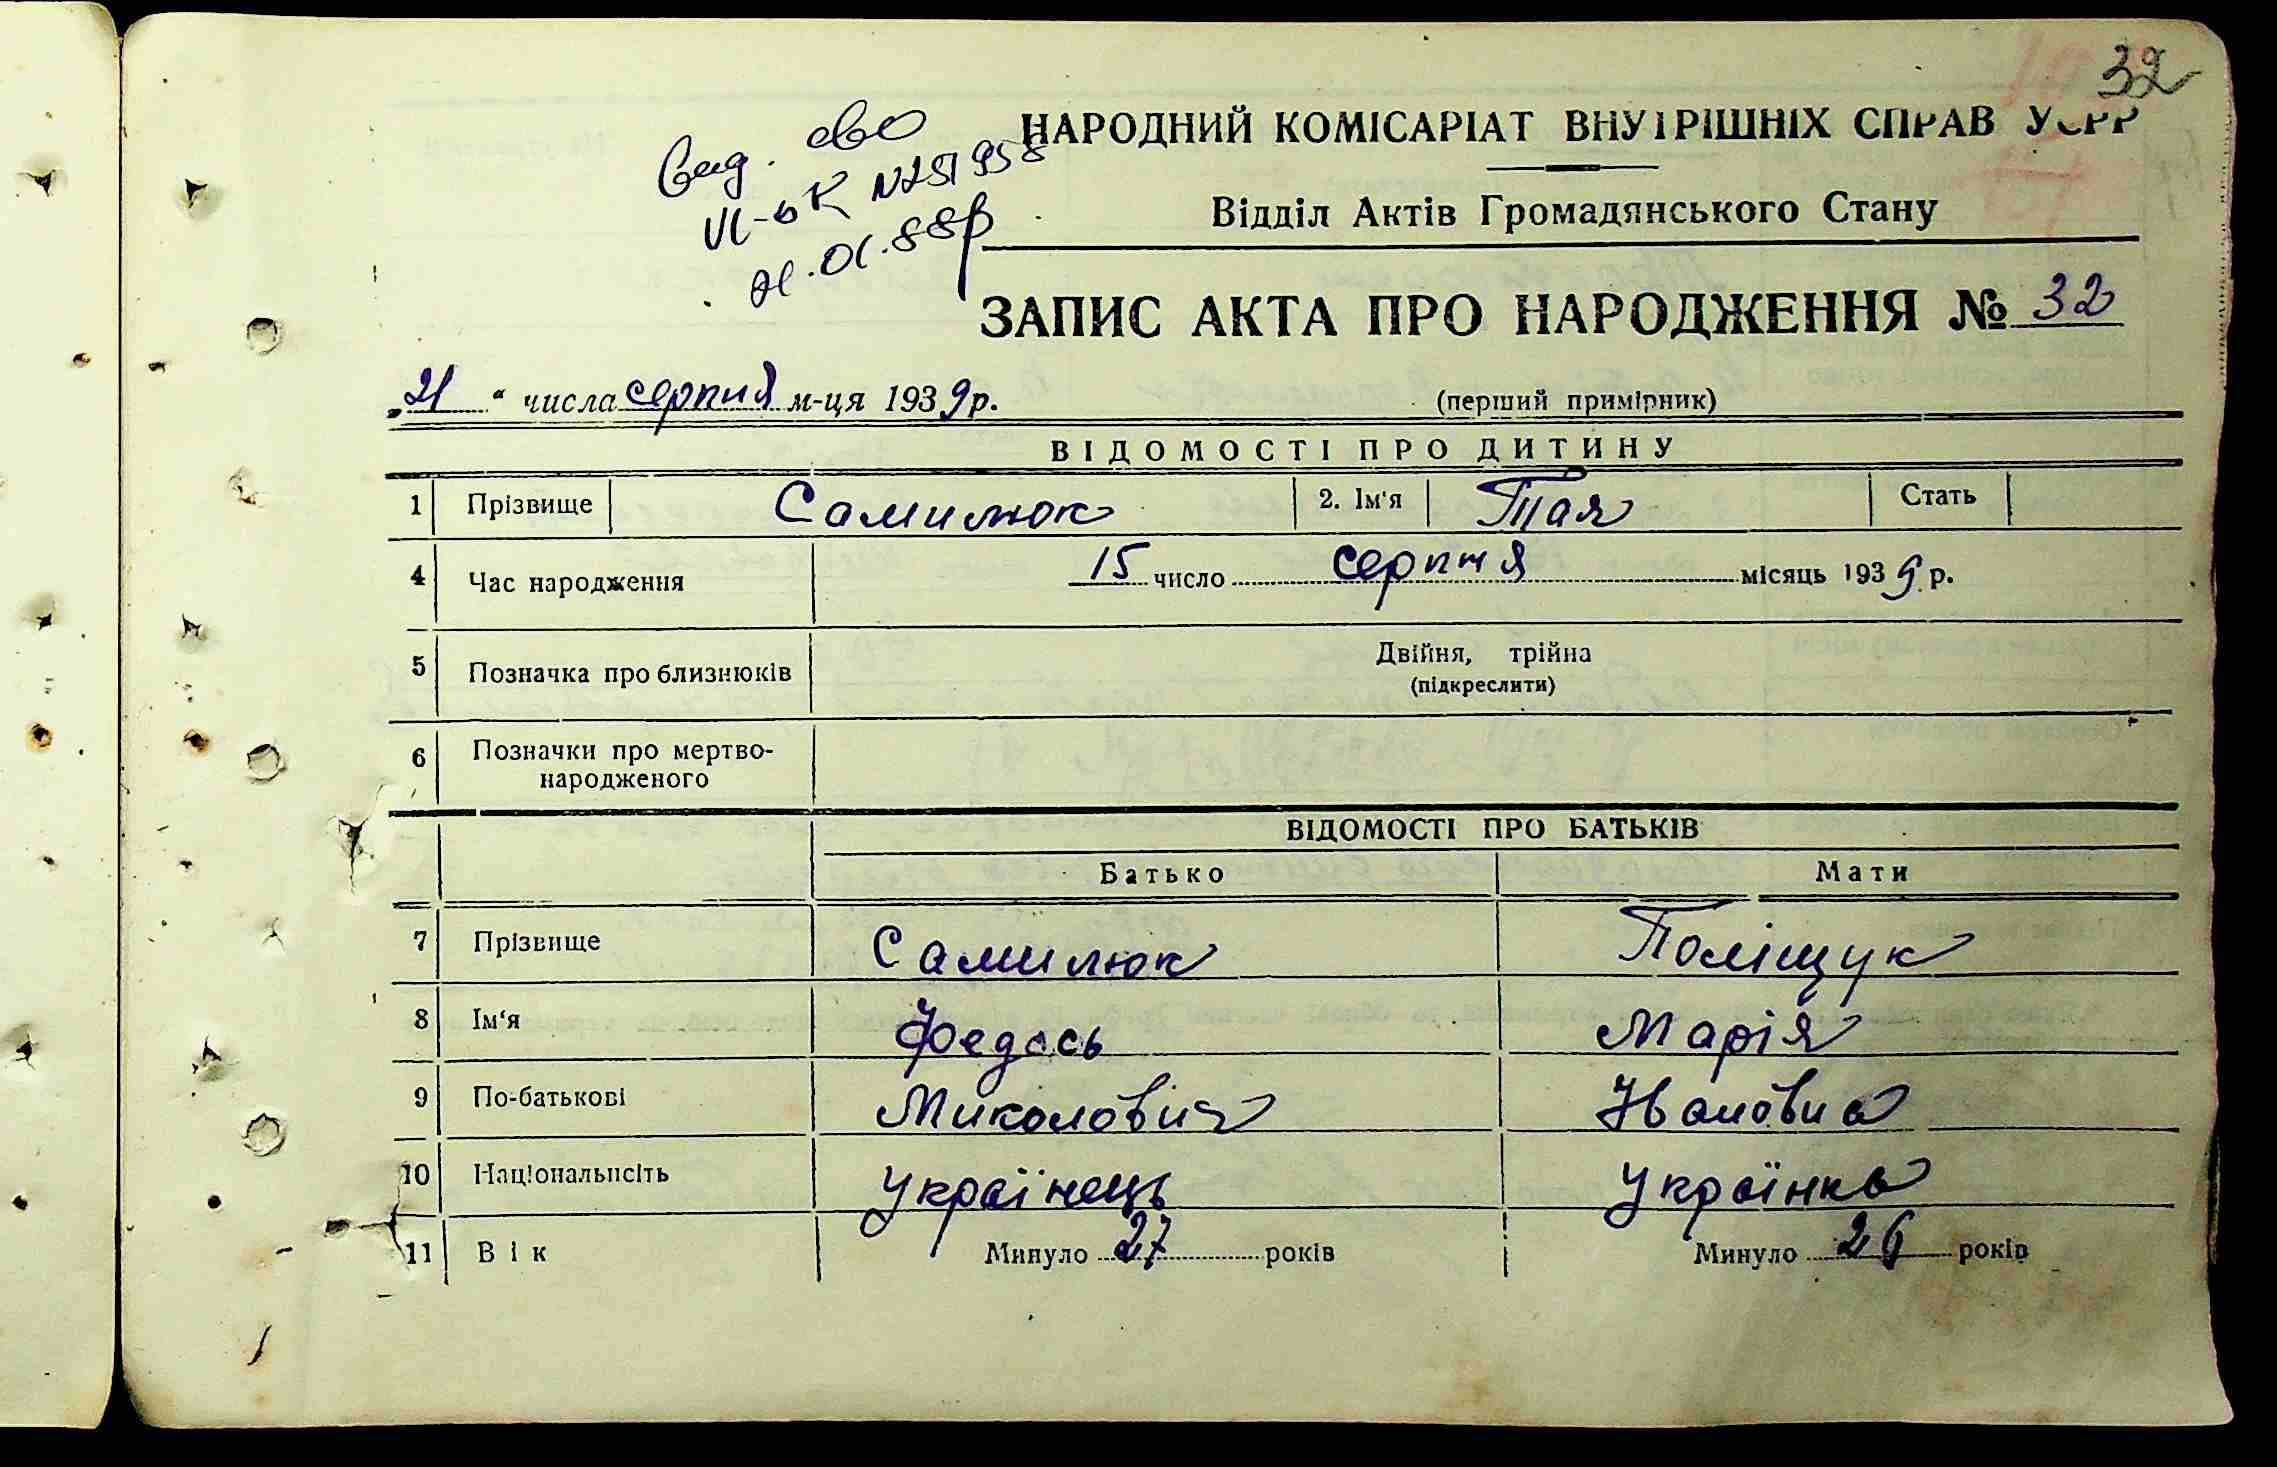 32
НАРОДНИЙ КОМІСАРІАТ ВНУТРІШНІХ СПРАВ УСРР
Вид. сво
VI-ЬК №251958
Відділ Актів Громадянського Стану
ЗАПИС АКТА ПРО НАРОДЖЕННЯ № 32
„21“ числа серпня м-ця 1939 р. (перший примірник)
ВІДОМОСТІ ПРО ДИТИНУ
1 Прізвище Самилюк 2. Ім'я Тая Стать
4 Час народження 15 число серпня місяць 1939 р.
5 Позначка про близнюків Двійня, трійна
(підкреслити)
6 Позначки про мертво-
народженого
ВІДОМОСТІ ПРО БАТЬКІВ
Батько Мати
7 Прізвище Самилюк Поліщук
8 Ім'я Федось Марія
9 По-батькові Миколович Івановна
10 Національність Українець Українка
11 Вік Минуло 27 років Минуло 26 років